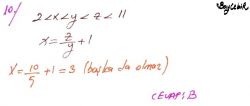 10/
2<x<y<z<11
x = z/y + 1
x = 10/5 + 1 = 3 (başka da olmaz)
CEVAP: B